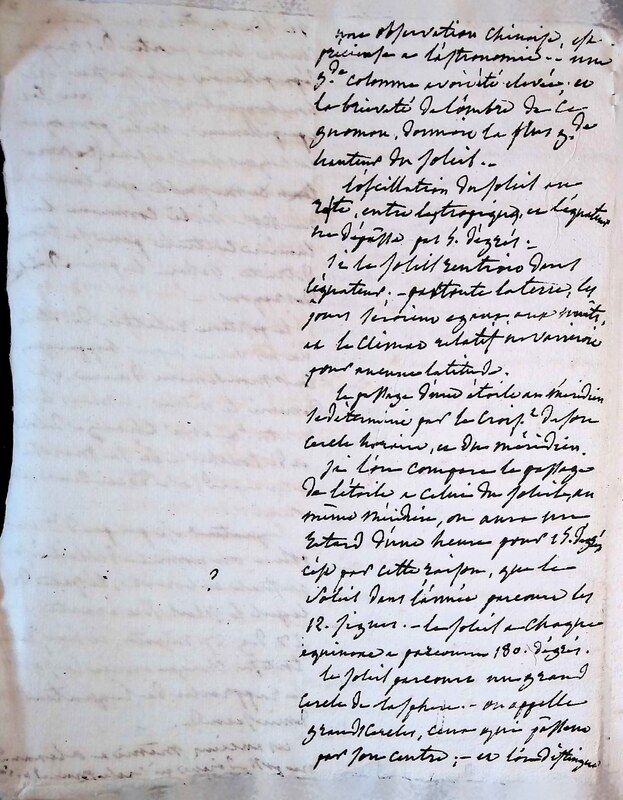 une observation chinoise, est
precieuse a l'astronomie.. une
g.de colonne avoit été elevée, et
la brieveté de l'ombre de ce
gnomon, donnoit la plus g.de
hauteur du soleil..
l'oscillation du soleil en
été, entre les tropiques, et l'équateur
ne dépasse pas 5. dégrés.
si le soleil restoit dans
l'équateur, par toute la terre, les
jours seroient egaux aux nuits,
et le climat relatif ne varieroit
pour aucune latitude.
le passage d'une étoile au méridien
se détermine par le crois.t de son
cercle horaire, et du méridien.
si l'on compare le passage
de l'étoile a celui du soleil, au
même méridien, on aura un
retard d'une heure pour 15. dégrés
c'est par cette raison, que le
soleil dans l'année parcourt les
12. signes. - le soleil a chaque
equinoxe a parcouru 180. dégrés.
le soleil parcourt un grand
cercle de la sphere. - on appelle
grands cercles, ceux qui passent
par son centre; - et l'on distingue